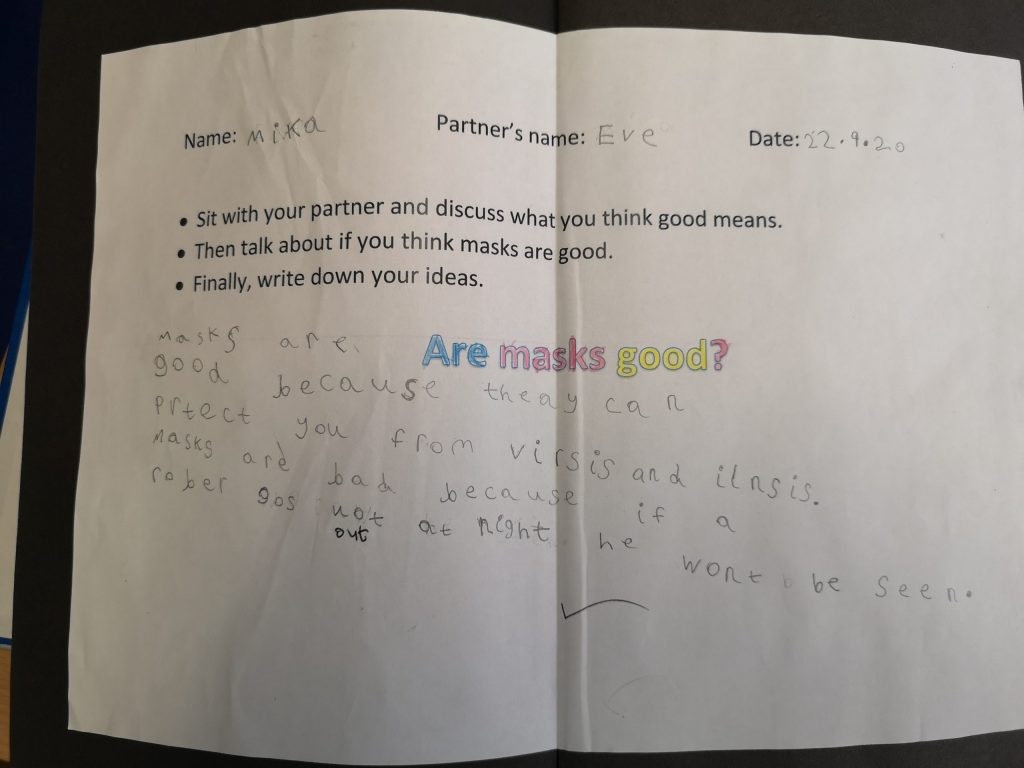 Name: Mika Partner's name: Eve Date: 22.9.20
• Sit with your partner and discuss what you think good means.
• Then talk about if you think masks are good.
• Finally, write down your ideas.
Are masks good?
masks are
good because theay can
prtect you from virsis and ilnsis.
masks are bad because if a
rober gos uot at night he wont be seen.
out